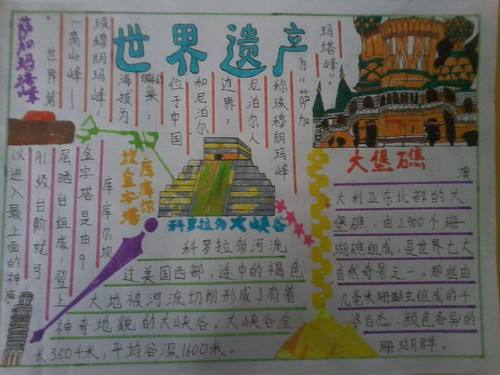 世界遗产
萨加玛塔峰
世界第
一高山峰——
珠穆朗玛峰，
海拔为
米，
位于中国
和尼泊尔
边界，
尼泊尔人
称珠穆朗玛峰
为“萨加
玛塔峰”。
库库尔
坎金字塔
库库尔坎
金字塔是由9
层晒台组成，登上
91级台阶就可
以进入最上面的神庙
科罗拉多大峡谷
科罗拉多河流
过美国西部，途中的褐色
大地被河流切削形成了有着
神奇地貌的大峡谷。大峡谷全
长3504米，平均谷深1600米。
大堡礁
澳
大利亚东北部的大
堡礁，由2900个珊
瑚礁组成，是世界七大
自然奇景之一，那些由
几毫米珊瑚虫组成的千
姿百态，颜色各异的
珊瑚群。